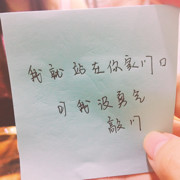 我就站在你家门口
可我没勇气
敲门